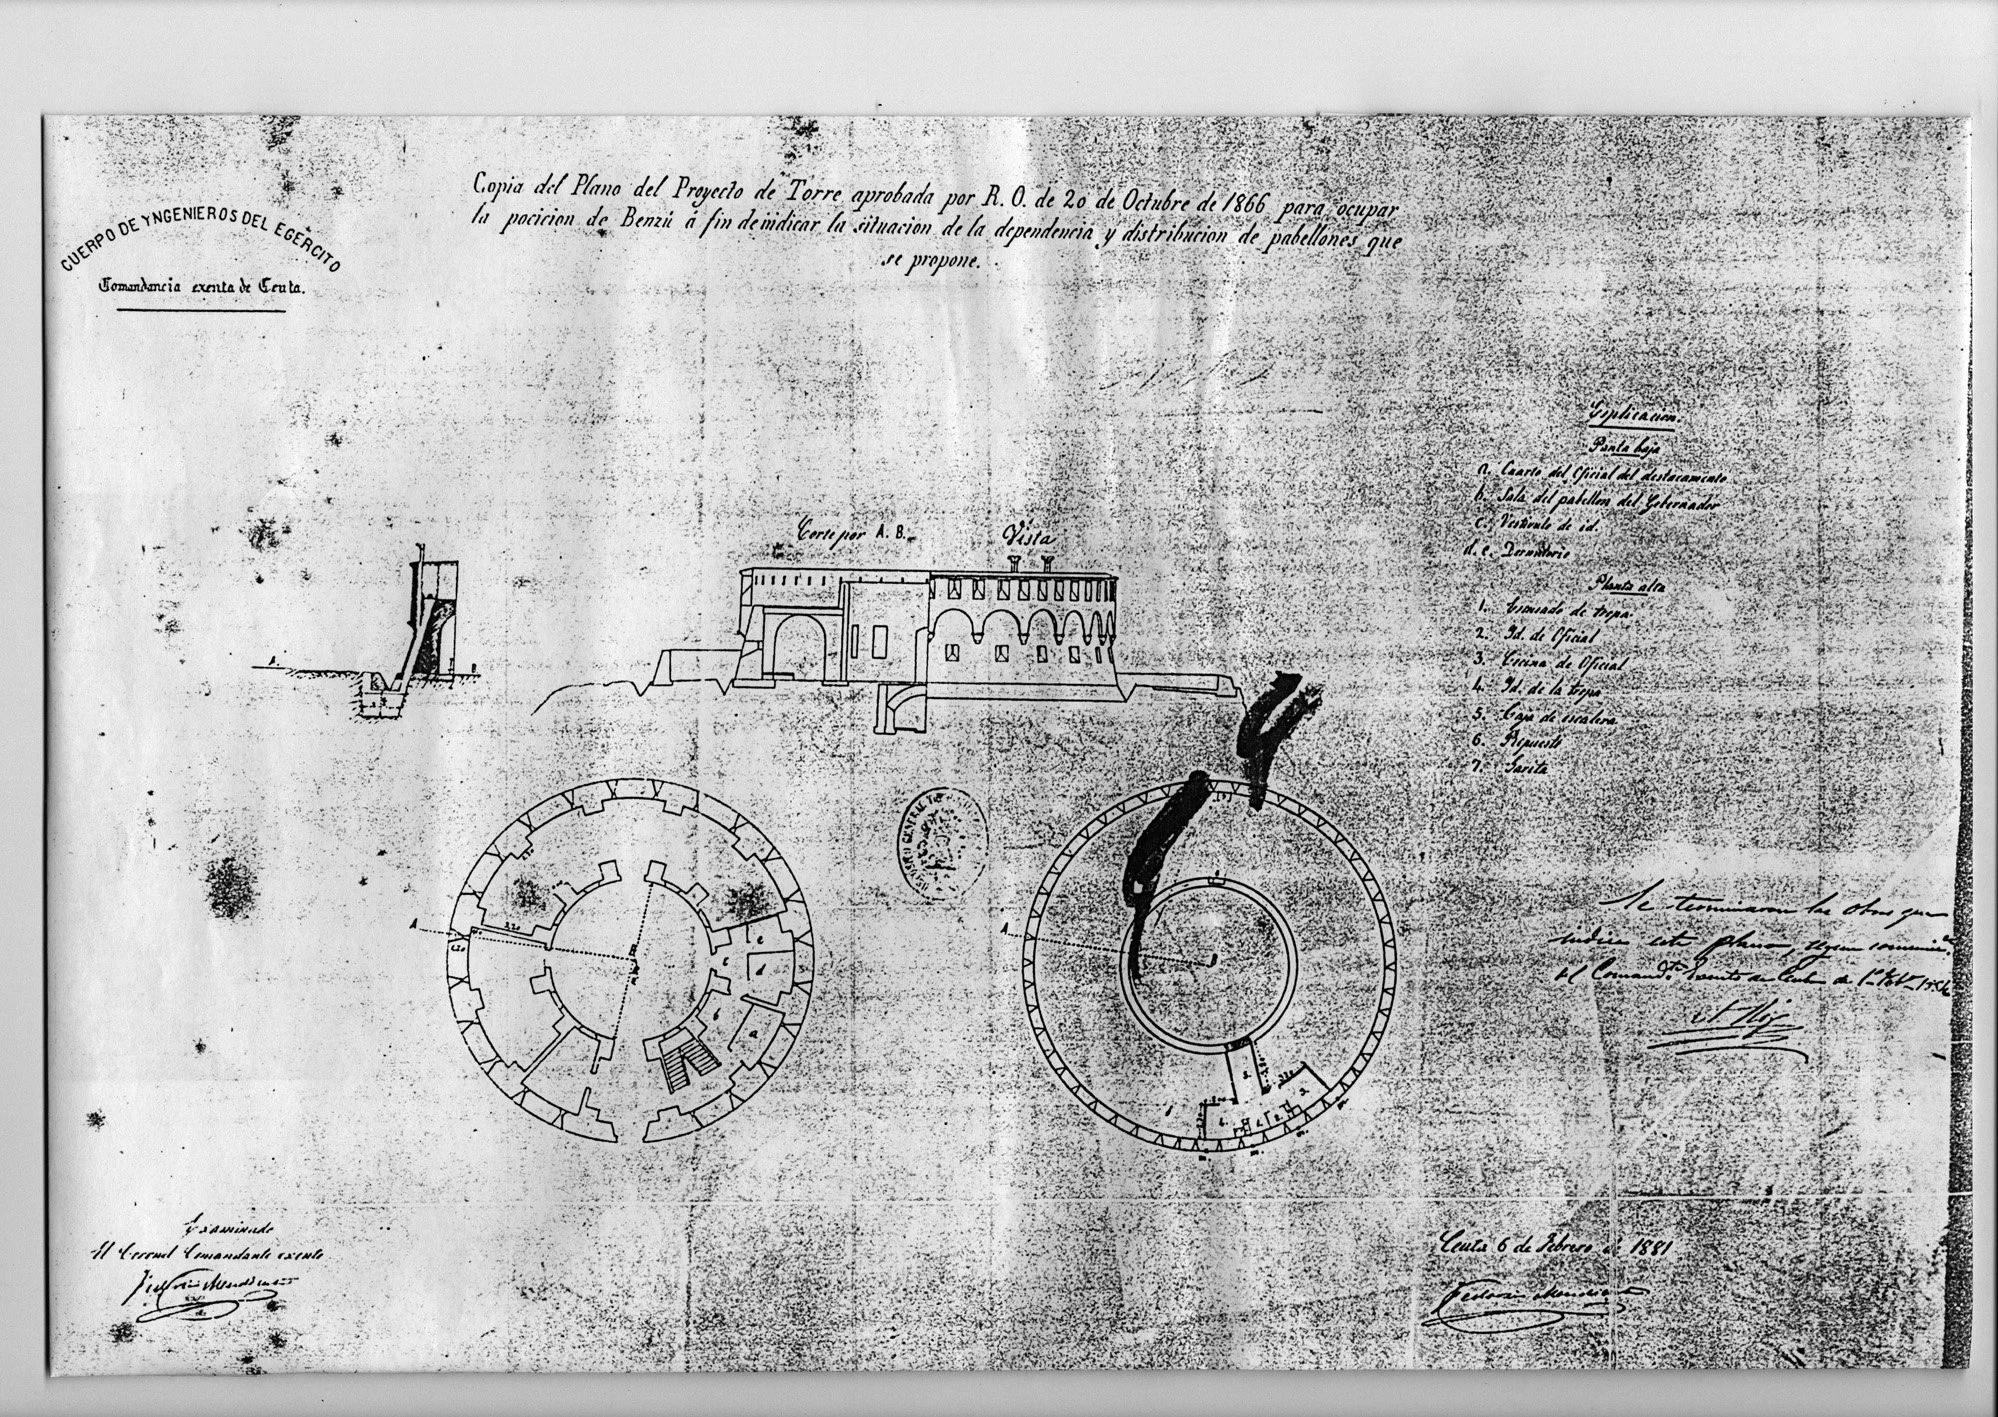 CUERPO DE YNGENIEROS DEL EGERCITO
Comandancia exenta de Ceuta.
Copia del Plano del Proyecto de Torre aprobada por R. O. de 20 de Octubre de 1866 para ocupar
la pocicion de Benzú á fin de indicar la situacion de la dependencia y distribucion de pabellones que
se propone.
Esplicacion.
Planta baja
a. Cuarto del Oficial del destacamento
b. Sala del pabellon del Gobernador
c. Vestivulo de id.
d. e. Dormitorio
Planta alta
1. Cuadra de tropa
2. Id. de Oficial
3. Cocina de Oficial
4. Id. de la tropa
5. Caja de escalera
6. Repuesto
7. Garita
Corte por A. B.
Vista
A
B
A
B
e
d
c
b
a
A
Se terminaron las obras que
indica este plano, segun comunic.
del Comand.te Exento de Ceuta de 1º
Examinado
El Coronel Comandante exento
Ceuta 6 de Febrero de 1881